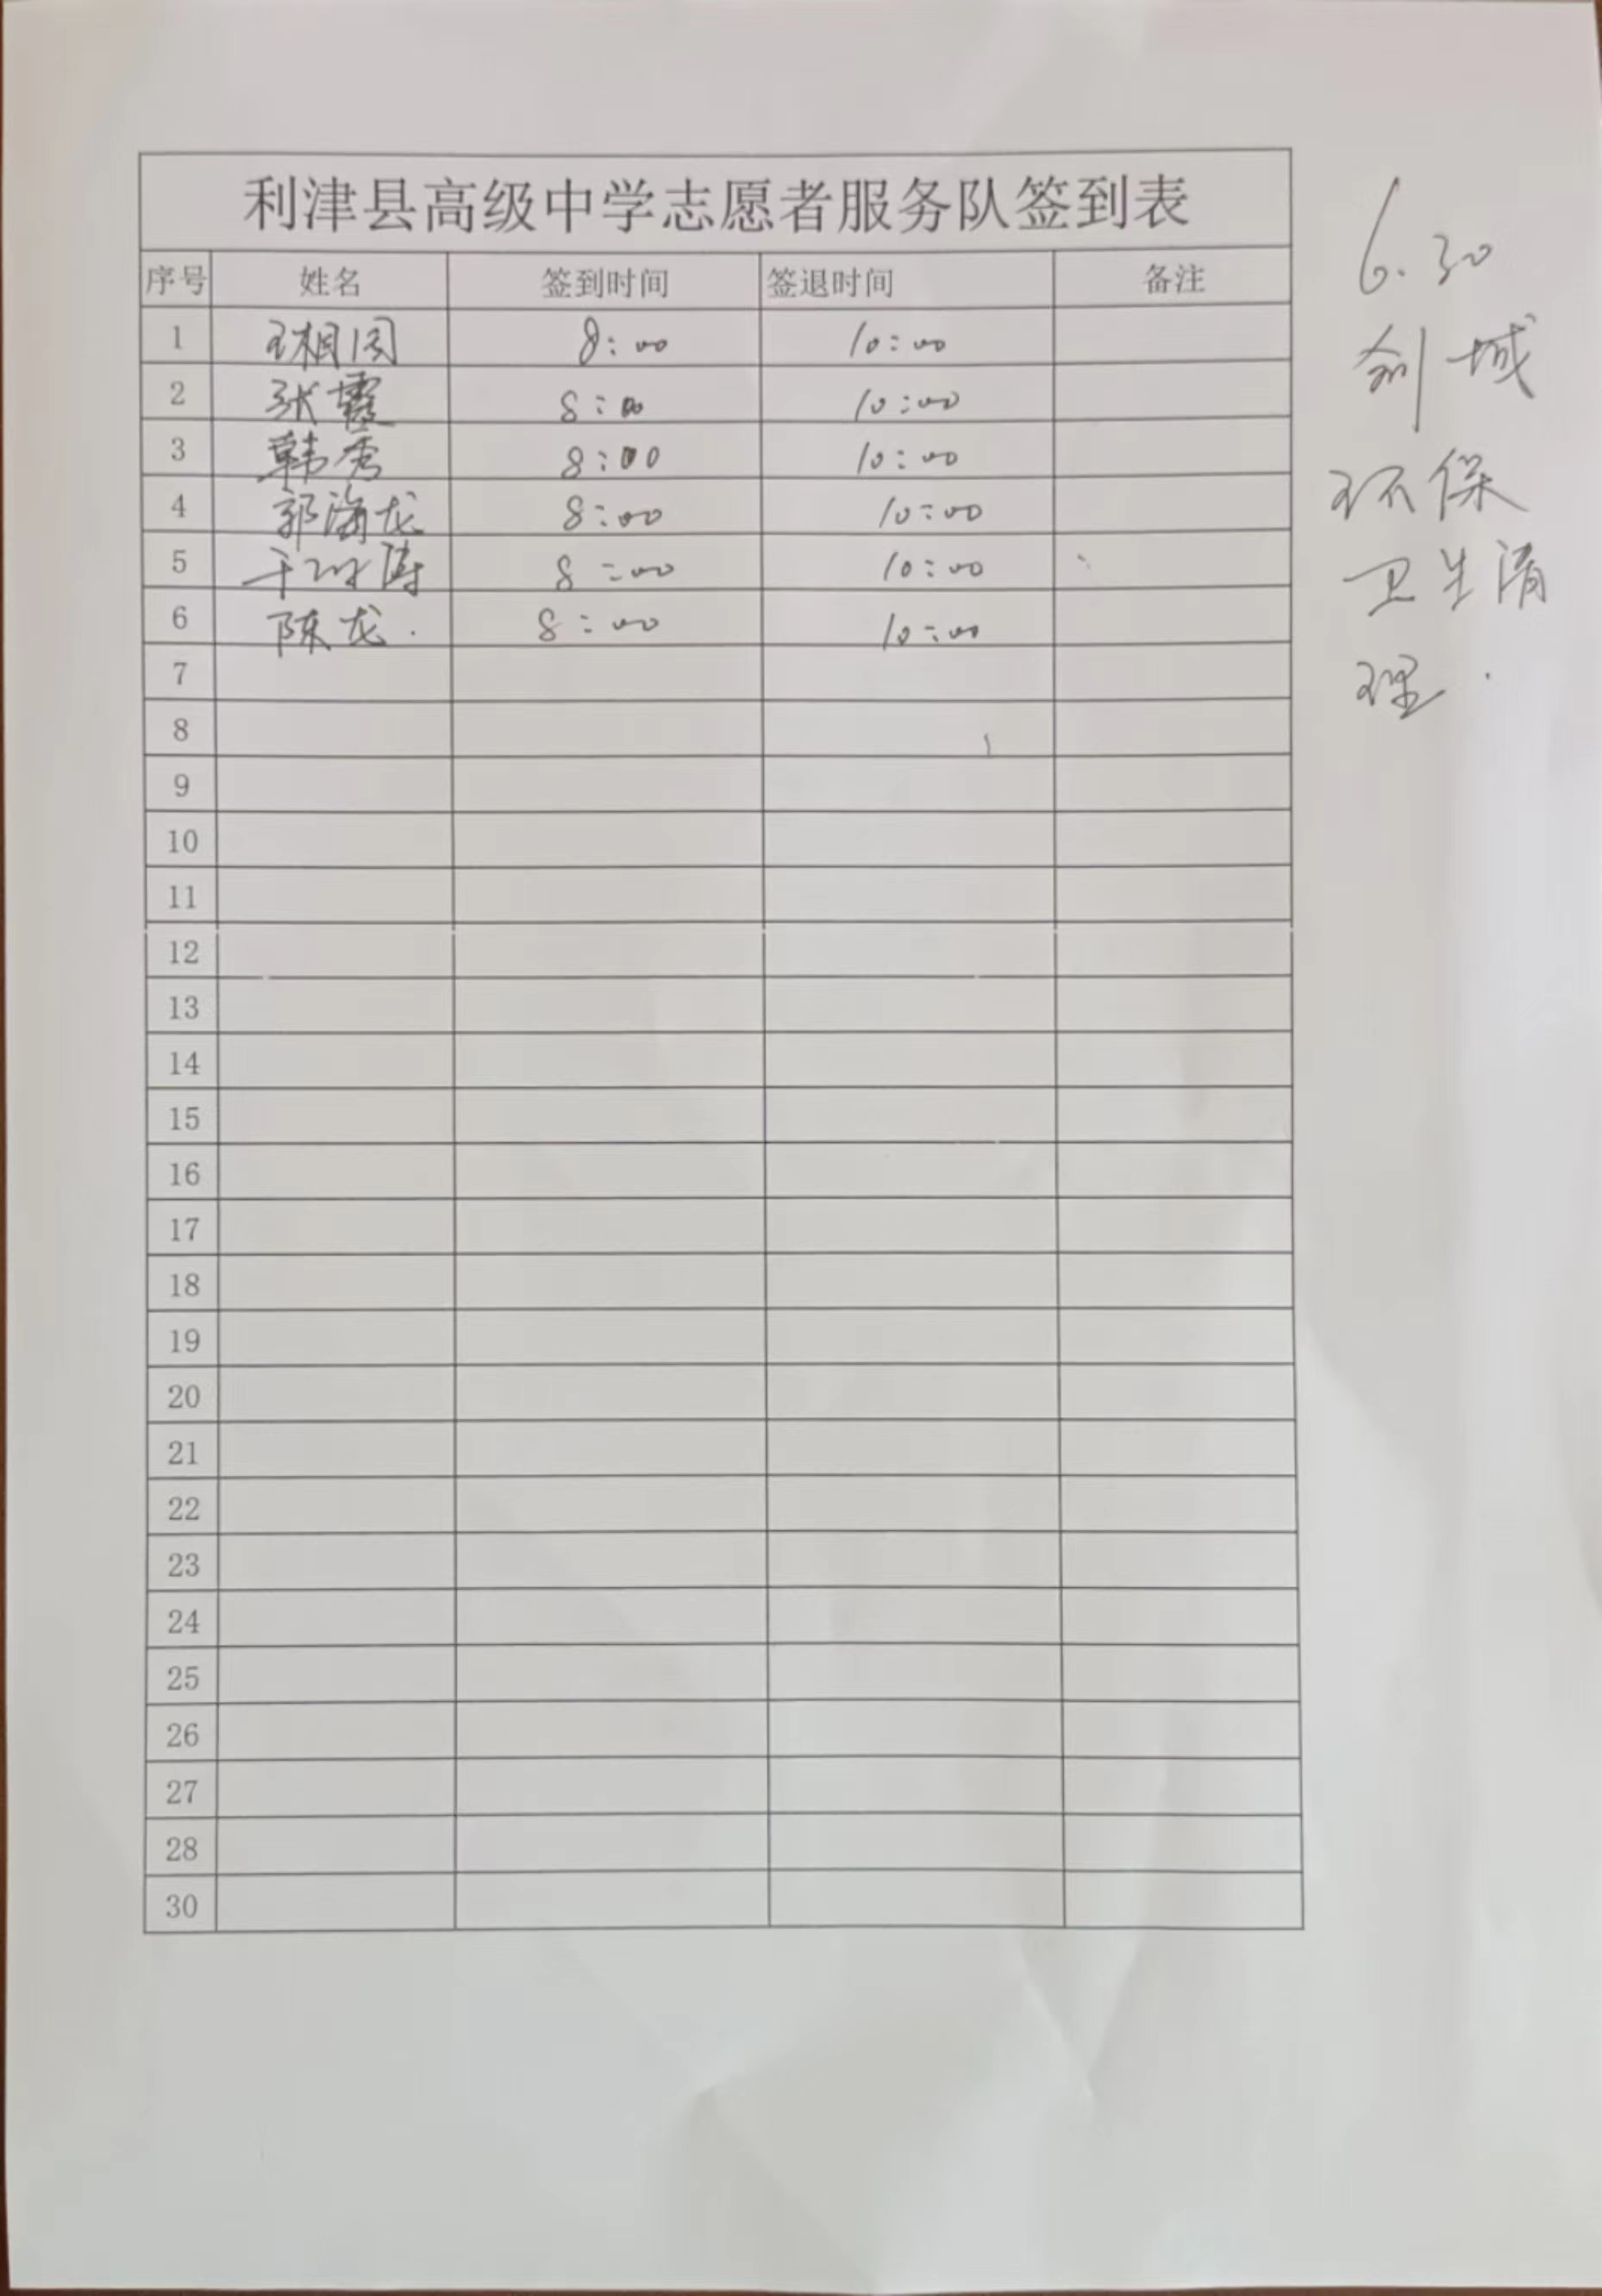 利津县高级中学志愿者服务队签到表
序号 姓名 签到时间 签退时间 备注
1 8:00 10:00
2 张霞 8:00 10:00
3 韩秀 8:00 10:00
4 郭海龙 8:00 10:00
5 8:00 10:00
6 陈龙. 8:00 10:00
7
8
9
10
11
12
13
14
15
16
17
18
19
20
21
22
23
24
25
26
27
28
30
6.30
创城
环保
卫生清
理.